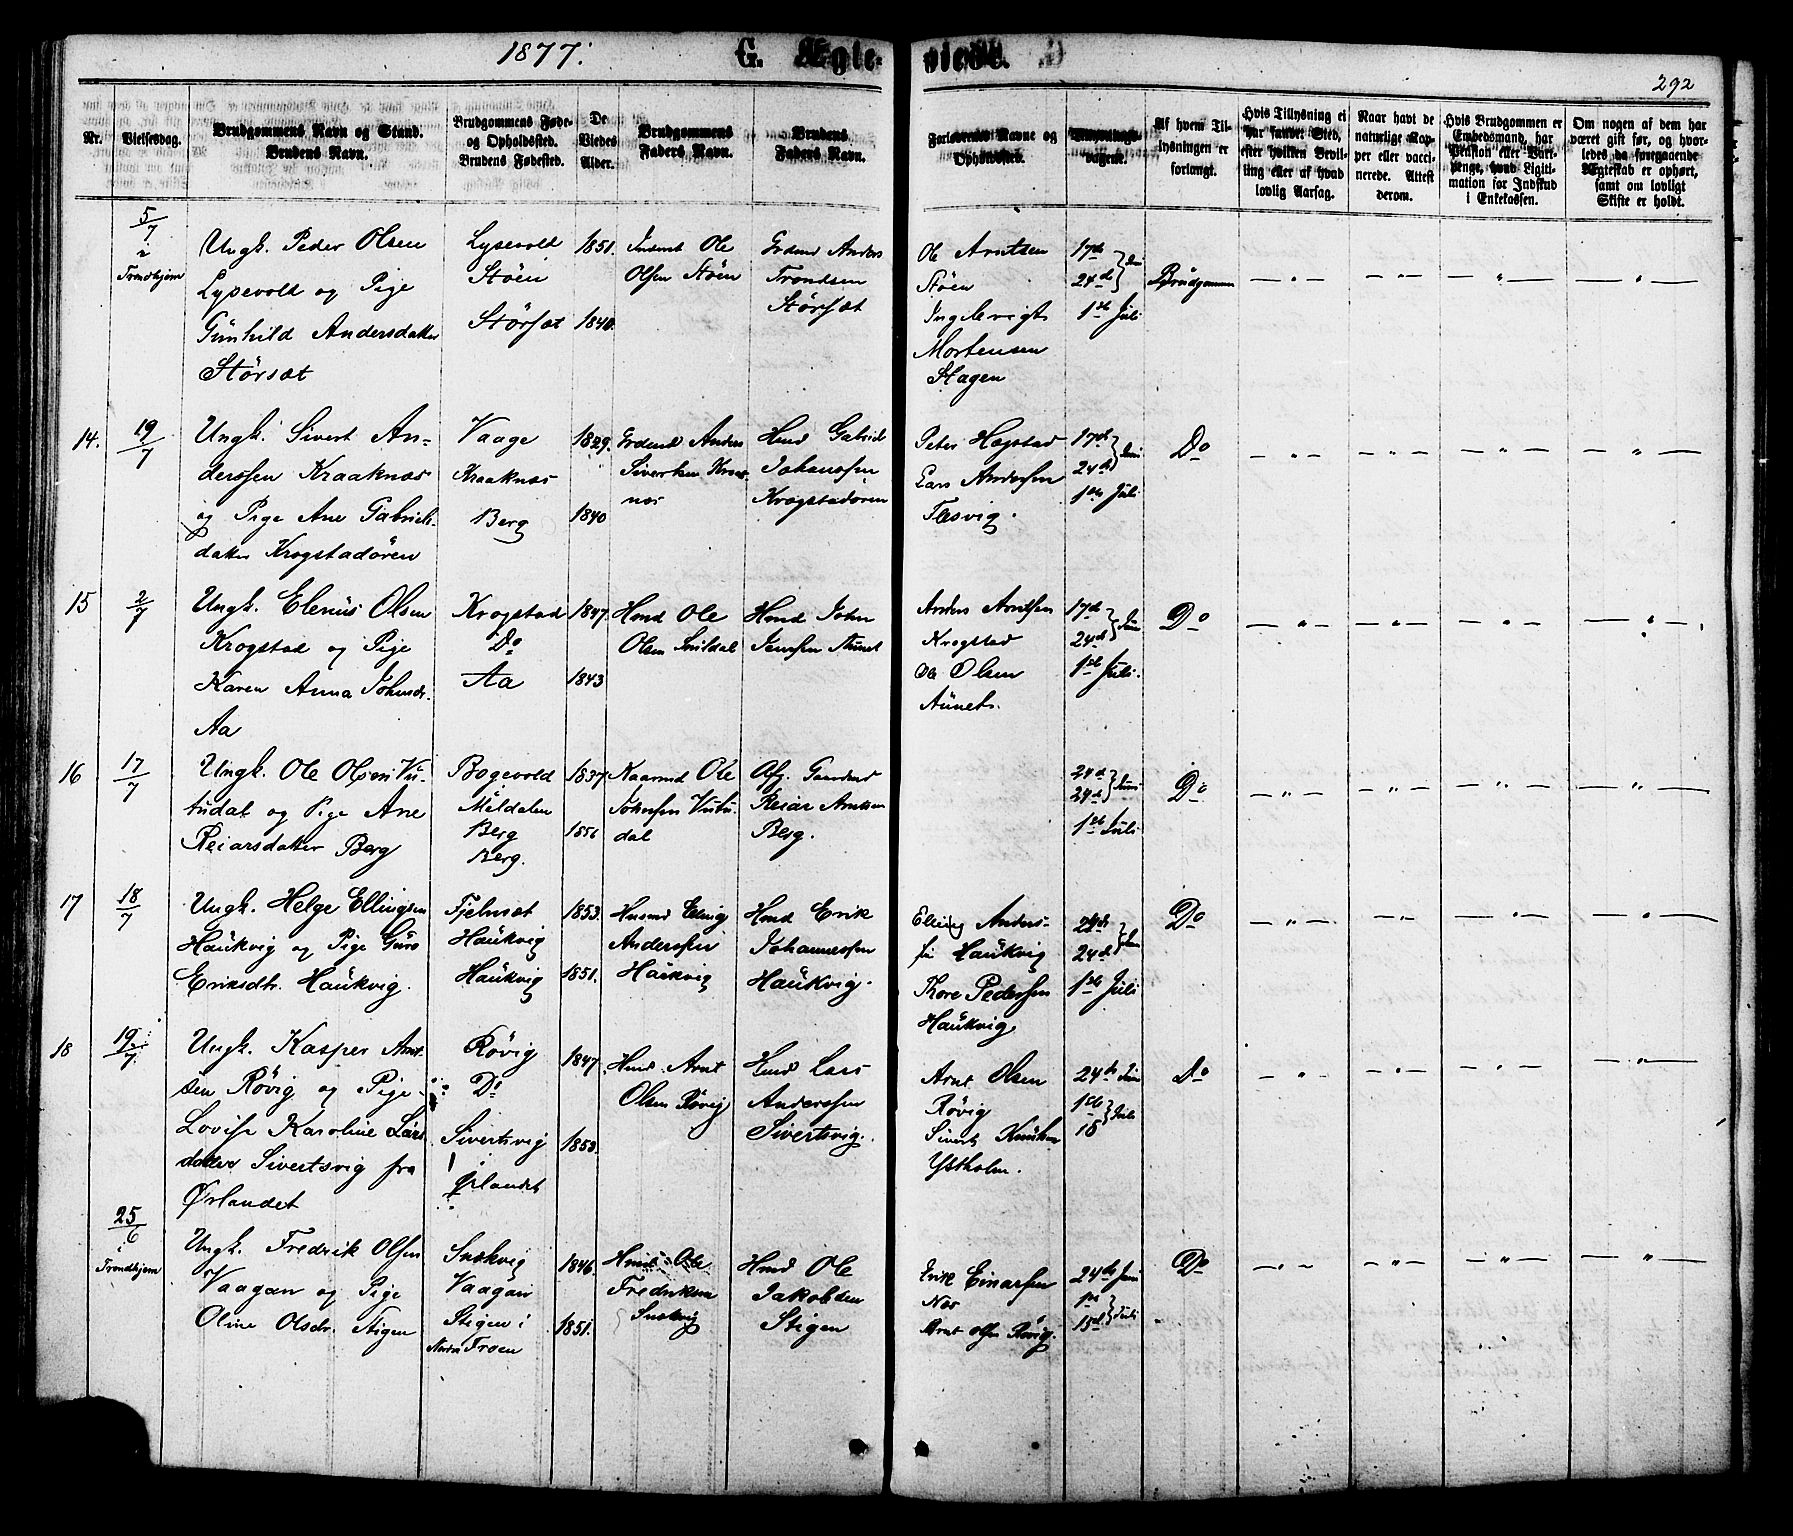 1877.
G. Ægte-
viede.
292
Nr.
Vielsesdag.
Brudgommens Navn og Stand.
Brudens Navn.
Brudgommens Føde-
og Opholdsted.
Brudens Fødested.
De
Viedes
Alder.
Brudgommens
Faders Navn.
Brudens
Faders Navn.
Forlovernes Navne og
Opholdssted.
Af hvem Til-
lysningen er
forlangt.
Hvis Tillysning ei
har fundet Sted,
efter hvilken Bevil-
ling eller af hvad
lovlig Aarsag.
Naar havt de
naturlige Kop-
per eller vacci-
nerede. Attest
derom.
Hvis Brudgommen er
Embedsmand, har
Pension eller Var-
penge, hvad Ligiti-
mation for Indskud
i Enkekassen.
Om nogen af dem har
været gift før, og hvor-
ledes da foregaaende
Ægteskab er ophørt,
samt om lovligt
Skifte er holdt.
5/7
i
Trondhjem
Ungk. Peder Olsen
Lysevold og Pige
Gunhild Andersdatter
Størsæt
Lysevold
Støen
Størsæt
1851.
1840.
Ole
Olsen Støen
Anders
Trondsen
Størsæt
Ole Arntsen
Støen
Ingebrigt
Mortensen
Hagen
17de
24de Juni
1ste Juli
Brudgommen
14.
19/7
Ungk. Sivert An-
derssen Kraaknæs
og Pige Ane Gabriels-
datter Krogstadøren
Vaage
Kraaknæs
Berg
1829.
1840
Anders
Sivertsen Kraak-
næs
Hmd Gabriel
Johanssen
Krogstadøren
Peter Hægstad
Lars Anderssen
Flesvig.
17de
24de Juni
1ste Juli
Do
15
2/7
Ungk. Elenus Olsen
Krogstad og Pige
Karen Anna Johnsdr.
Aa
Krogstad
Do
Aa
1847.
1843
Hmd Ole
Olsen
Hmd John
Jenssen Aunet
Anders Arntsen
Krogstad
Ole Olsen
Aunet.
17de
24de Juni
1ste Juli.
Do
16
17/7
Ungk. Ole Olsen Vu-
tudal og Pige Ane
Reiarsdatter Berg
Bøgevold
Mildalen
Berg
Berg.
1837
1856
Ole
Johnsen Vutu-
dal
Afg. Gaardmd
Reiar Arntsen
Berg.
24de
24de Juni
1ste Juli
Do
17
18/7
Ungk. Helge Ellingsen
Haukvig og Pige Guro
Eriksdtr. Haukvig.
Fjelnset
Haukvig
Haukvig
1853.
1851.
Husmd Elling
Anderssen
Haukvig
Hmd Erik
Johannessen
Haukvig.
Elling Anders-
sen Haukvig
Thore Pederssen
Haukvig.
24de
24de Juni
1ste Juli
Do
18
19/7
Ungk. Kasper Arnt-
sen Røvig og Pige
Lovise Karoline Lars-
datter Sivertsvig fra
Ørlandet
Røvig
Do
Sivertsvig
i
Ørlandet
1847.
1853.
Hmd. Arnt
Olsen Røvig
Hmd Lars
Anderssen
Sivertsvig.
Arnt Olsen
Røvig
Sivert Knutsen
Ystholm.
24de Juni
1ste
15 Juli
Do
25/6
i
Trondhjem
Ungk. Fredrik Olsen
Vaagan og Pige
Oline Olsdr. Stigen
Snekvig
Vaagan
Stigen i
Nordre Froen
1846.
1851.
Hmd Ole
Fredriksen
Snekvig
Hmd Ole
Jakobsen
Stigen
Erik Einarssen
Næs
Arnt Olsen Røvig.
24de Juni
1ste
15de Juli
Do